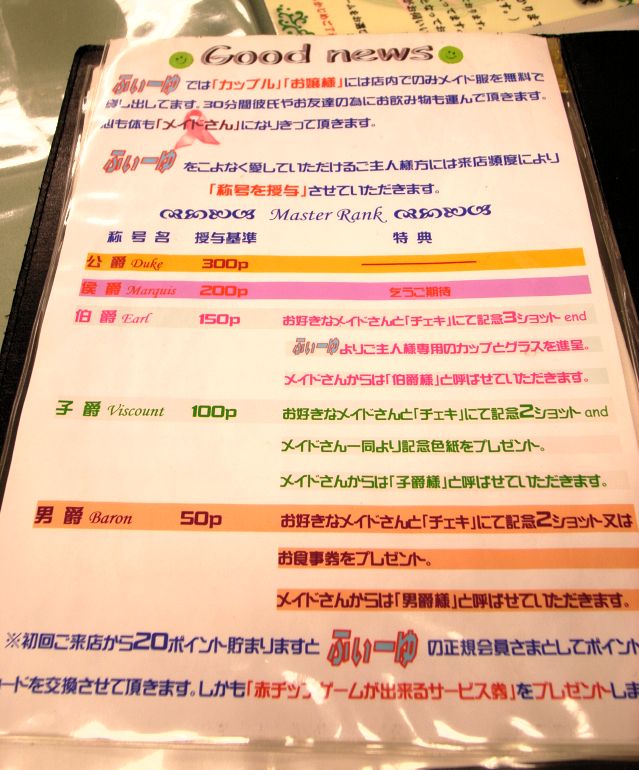 Good news
ふぃーゆ では「カップル」「お嬢様」には店内でのみメイド服を無料で
し出してます。30分間彼氏やお友達の為にお飲み物も運んで頂きます。
心も体も「メイドさん」になりきって頂きます。
ふぃーゆ をこよなく愛していただけるご主人様方には来店頻度により
「称号を授与」させていただきます。
Master Rank
称号名 授与基準 特典
公爵 Duke 300p
侯爵 Marquis 200p 乞うご期待
伯爵 Earl 150p お好きなメイドさんと「チェキ」にて記念3ショット end
ふぃーゆ よりご主人様専用のカップとグラスを進呈。
メイドさんからは「伯爵様」と呼ばせていただきます。
子爵 Viscount 100p お好きなメイドさんと「チェキ」にて記念2ショット and
メイドさん一同より記念色紙をプレゼント。
メイドさんからは「子爵様」と呼ばせていただきます。
男爵 Baron 50p お好きなメイドさんと「チェキ」にて記念2ショット又は
お食事券をプレゼント。
メイドさんからは「男爵様」と呼ばせていただきます。
※初回ご来店から20ポイント貯まりますと ふぃーゆ の正規会員さまとしてポイント
ードを交換させて頂きます。しかも「赤チップゲームが出来るサービス券」をプレゼントしま